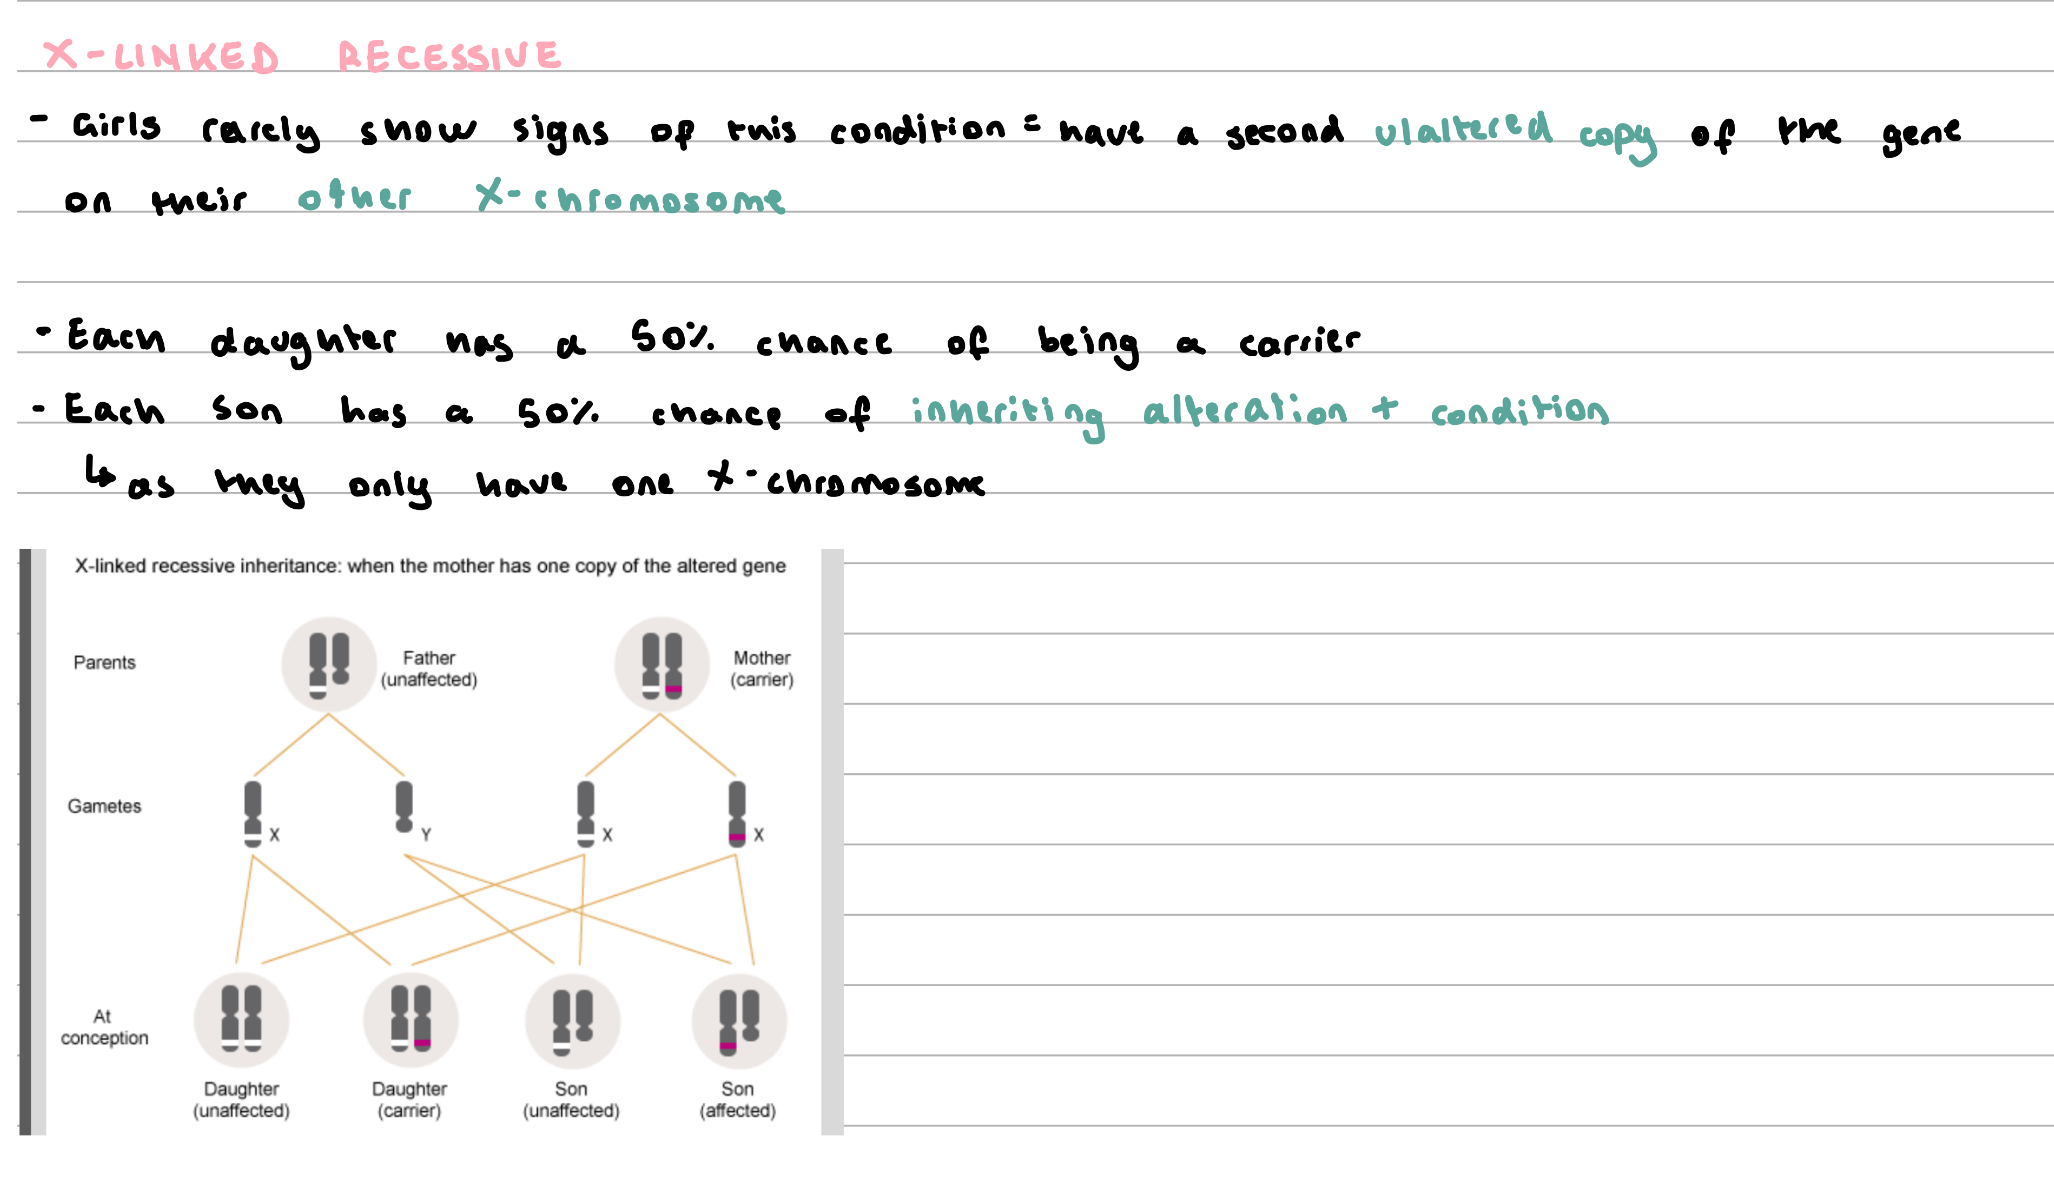 X-LINKED RECESSIVE
- Girls rarely show signs of this condition = have a second ulaltered copy of the gene
on their other X-chromosome
- Each daughter has a 50% chance of being a carrier
- Each son has a 50% chance of inheriting alteration + condition
↳ as they only have one X-chromosome
X-linked recessive inheritance: when the mother has one copy of the altered gene
Parents
Father
(unaffected)
Mother
(carrier)
Gametes
X
Y
X
X
At
conception
Daughter
(unaffected)
Daughter
(carrier)
Son
(unaffected)
Son
(affected)